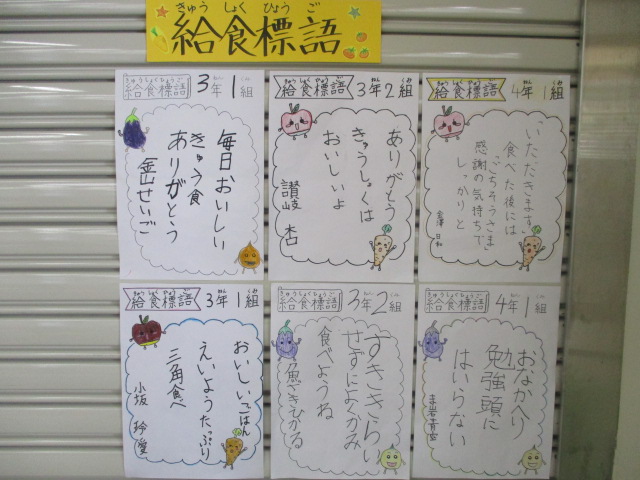 きゅうしょくひょうご
給食標語
きゅうしょくひょうご
給食標語
3年1組
毎日おいしい
きゅう食
ありがとう
きゅうしょくひょうご
給食標語
3年2組
ありがとう
きゅうしょくは
おいしいよ
讃岐
きゅうしょくひょうご
給食標語
4年1組
いただきます
食べた後には
ごちそうさま
感謝の気持ちで、
しっかりと
きゅうしょくひょうご
給食標語
3年1組
おいしいごはん
えいようたっぷり
三角食べ
小坂 玲愛
きゅうしょくひょうご
給食標語
3年2組
すききらい
せずによくかみ
食べようね
きゅうしょくひょうご
給食標語
4年1組
おなかへり
勉強頭に
はいらない